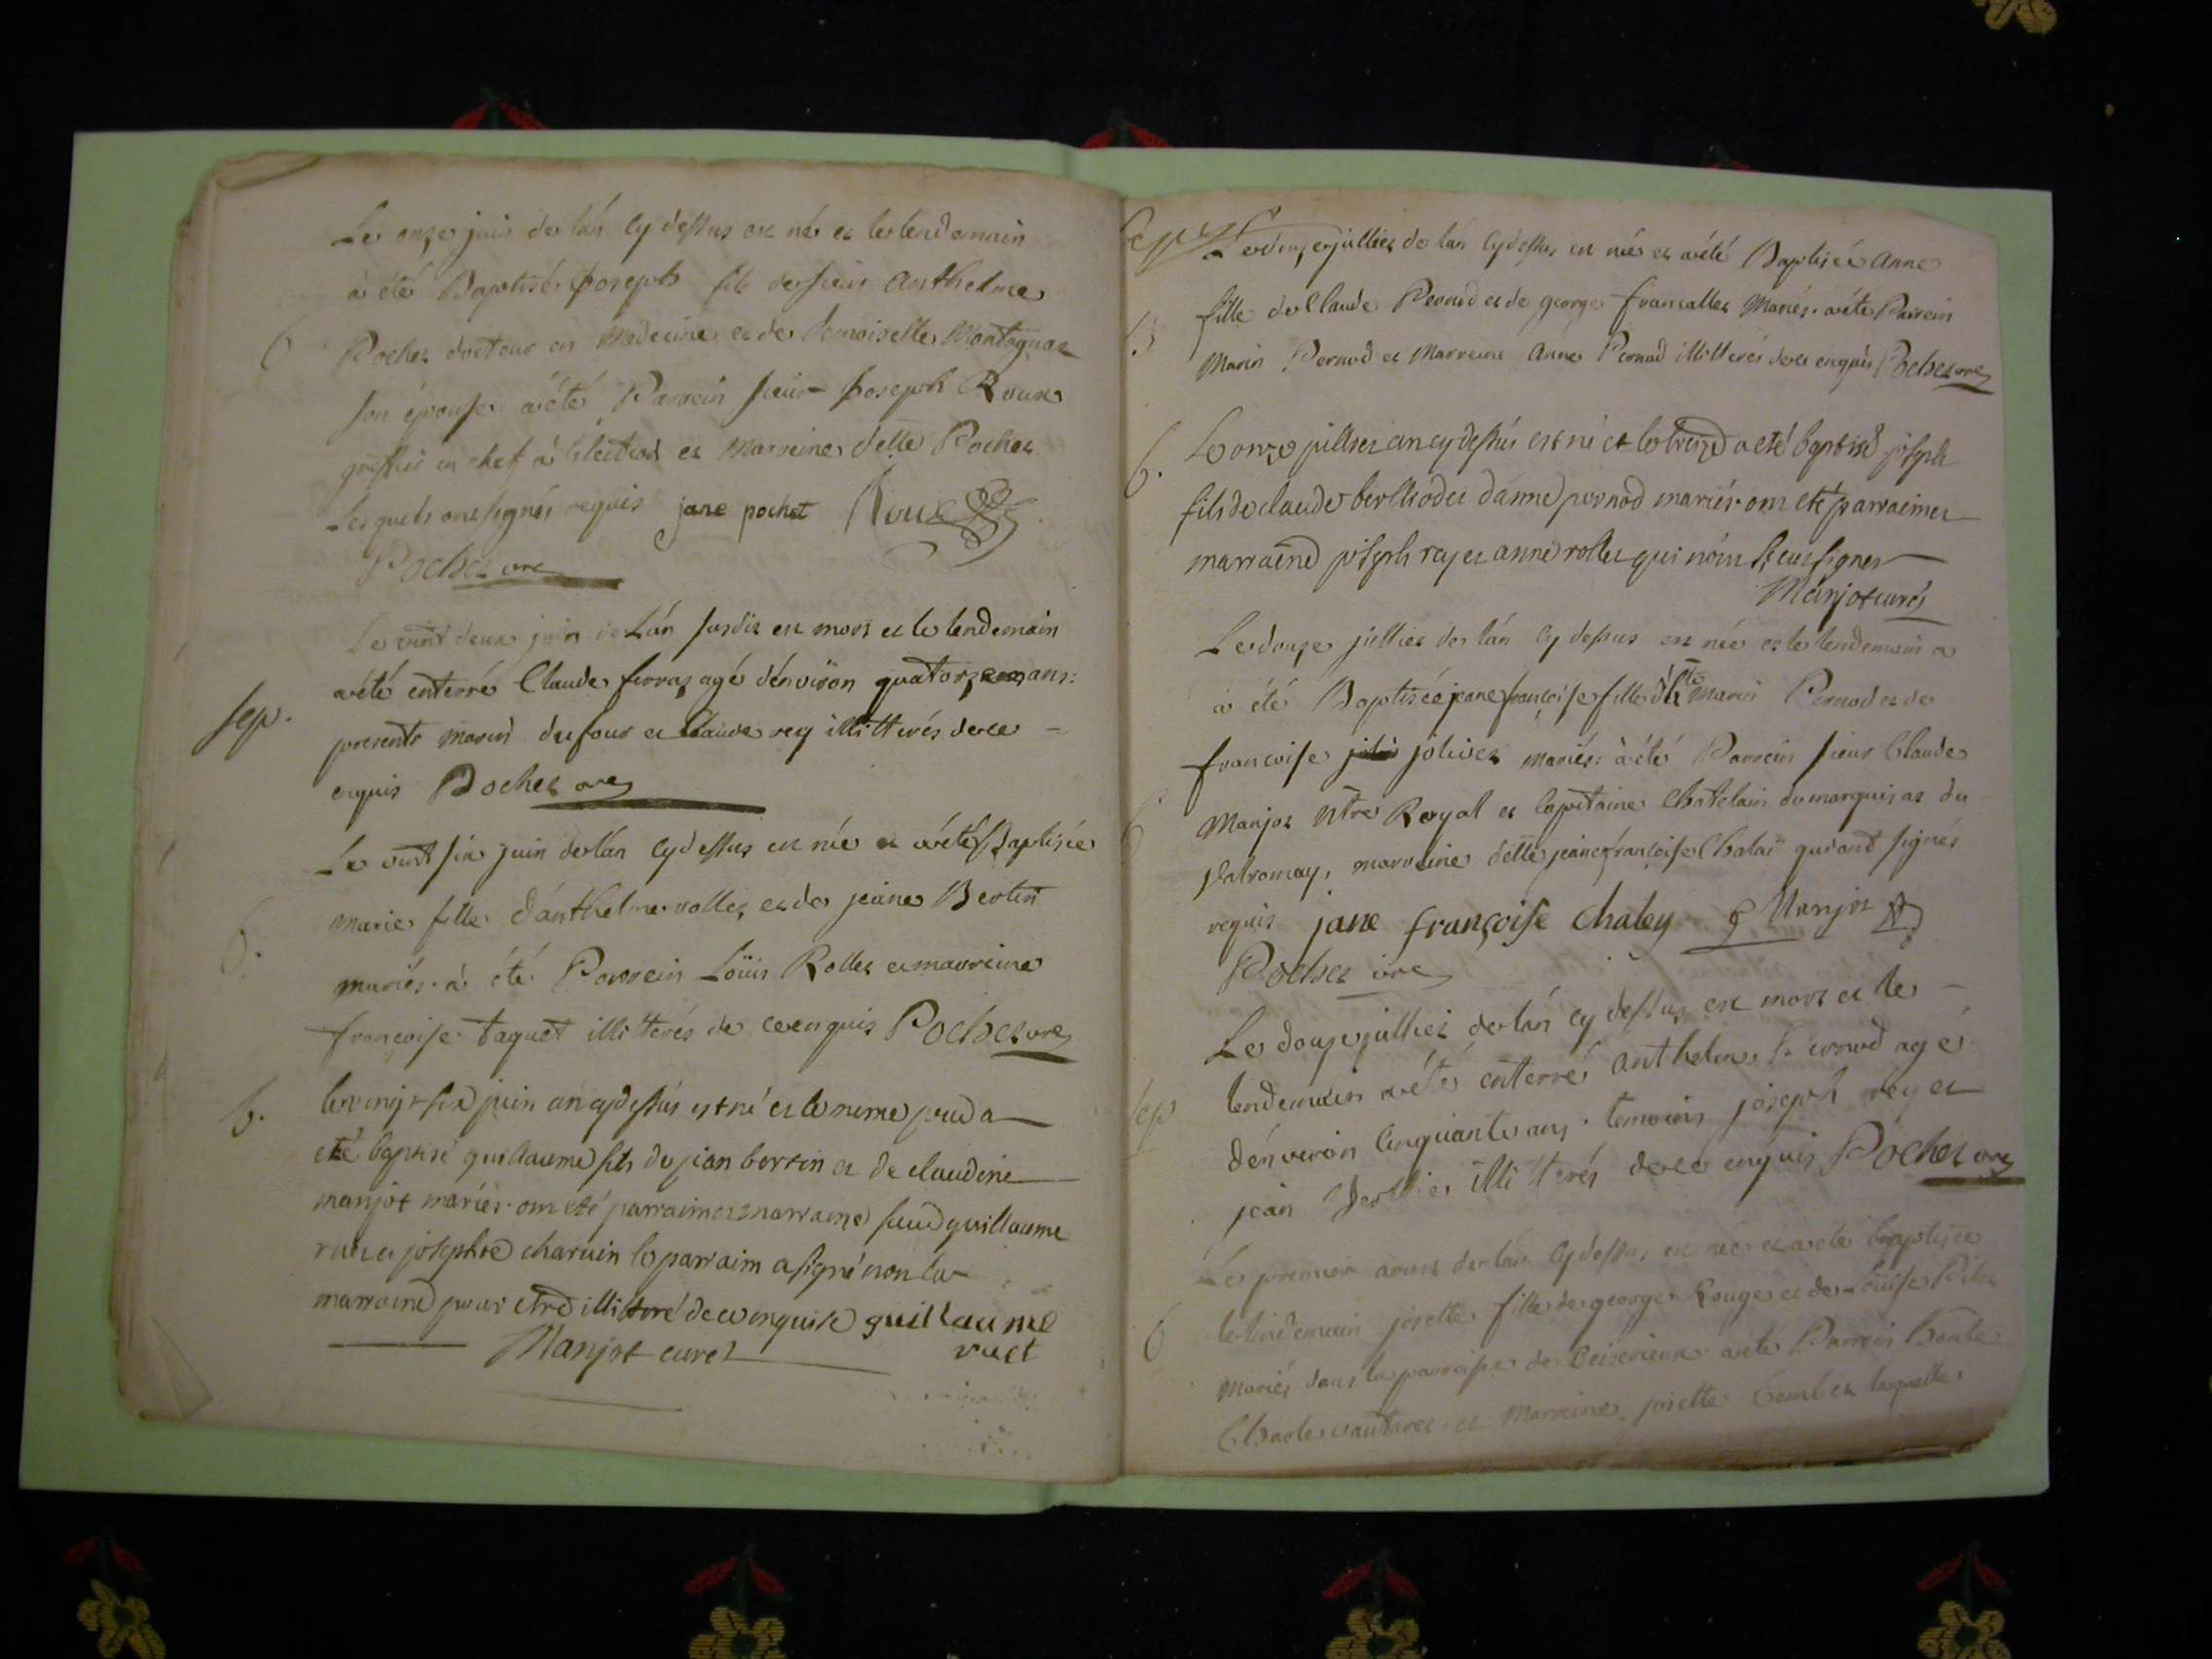 Le onze juin de lán cy dessus est né et le lendemain
à été Baptisé joseph fils de sieur Anthelme
B
Pochet docteur en Medecine et de demoiselle Montagnat
son épouse. a été Parrein sieur joseph Roux
greffier en chef à l'élection et Marreine delle Pochet
Lesquels ont signés requis jane pochet Roux
Pochet vre
Le vint deux juin de Lán susdit est mort et le lendemain
a été enterré Claude ferraz agé dénviron quatorze ans:
sep.
presents marin dufour et Claude rey illitterés de ce
enquis Pochet vre
Le vint six juin de lán cy dessus est née et a été Baptisée
Marie fille dánthelme rollet et de jeane Bertin
B.
mariés. à été Parrein Loüis Rollet et marreine
françoise taquet illiterés de ce enquis Pochet vre
b.
le vingt six juin an cy dessús est né et le meme jour a
eté baptisé guillaume fils de jean bertin et de claudine
manjot mariés. ont eté parrain et marraine sieur guillaume
ruet et josephte charvin le parrain a signé non la
marraine pour etre illitteré de ce enquise guillaume
Manjot curé ruet
Le douze julliet de lán cy dessus est née et a été Baptisée Anne
fille de Claude Pernod et de george francallet Mariés. a été Parrein
B
Marin Pernod et Marreine Anne Pernod illitterés de ce enquis Pochet vre
b.
Le onze julliet an cy dessús est né et le treize a eté baptisé joseph
fils de claude berthodet dánne pernod mariés. ont eté parrain et
marraine joseph rey et anne rollet qui nónt sceu signer
Manjot curé
Le douze julliet de lán cy dessus est née et le lendemain a
à été Baptisée jeane françoise fille dhte Marin Pernod et de
françoise jolivet mariés: à été Parrein sieur Claude
B
Manjot ntre Royal et Capitaine Chatelain du marquisat du
Valromay, marreine delle jeane françoise Chalaÿ qui ont signés
requis jane françoise chaley C Manjot
Pochet vre
Le douze julliet de lán cy dessus est mort et le
lendemain a été enterré anthelme Pernod agé
sep
dénviron cinquante ans. temoins joseph rey et
jean Berthet illitterés de ce enquis Pochet vre
Le premier aoust de lán cy dessus est née et a été baptisée
le lindemain josette fille de george Rouge et de Loüise
B
Mariés dans la parroisse de Ceiserieux a été Parrein honte
Charle et Marreine josette laquelle